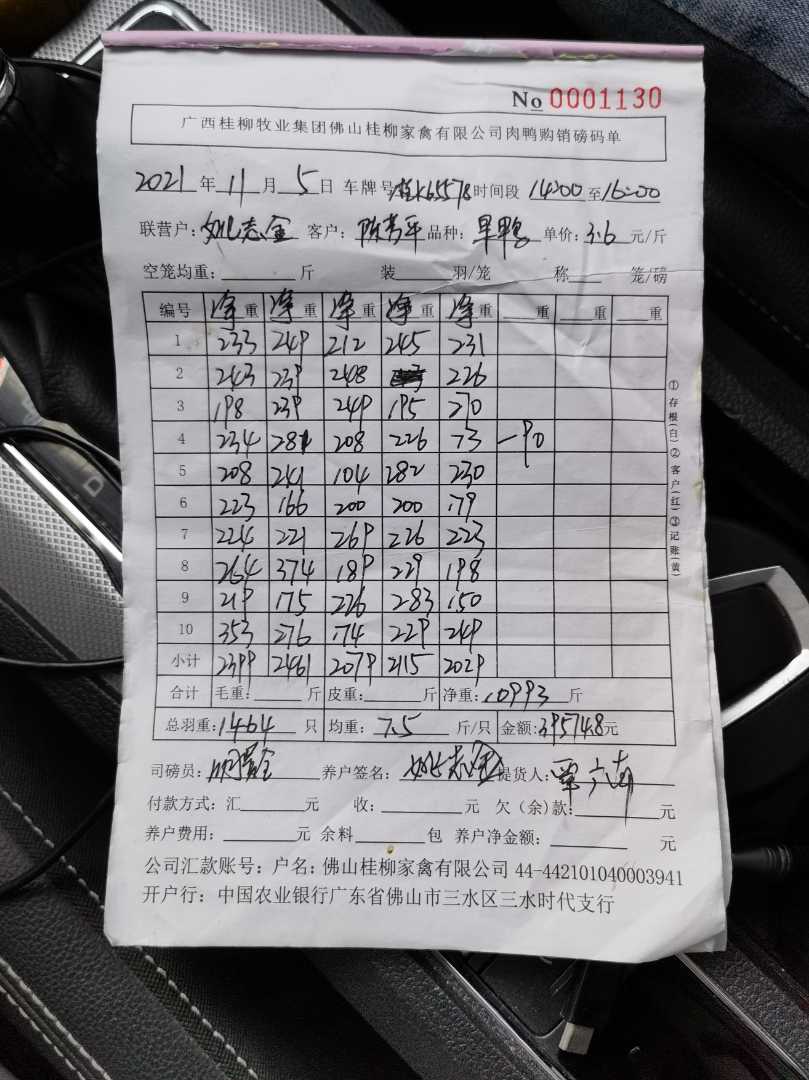 No 0001130
广西桂柳牧业集团佛山桂柳家禽有限公司肉鸭购销磅码单
2021年11月5日 车牌号 桂K65578 时间段 14:00至16:00
联营户:姚志金 客户:陈 平 品种:旱鸭 单价:3.6元/斤
空笼均重:斤 装 羽/笼 称 笼/磅
编号 净重 净重 净重 净重 净重 重 重 重
1 233 249 212 245 231
2 243 239 248 226
3 198 239 249 195 270
4 234 281 208 226 73 -90
5 208 241 104 282 230
6 223 166 200 200 179
7 224 221 269 226 223
8 264 374 189 229 198
9 219 175 226 283 150
10 353 276 174 229 249
小计 2399 2461 2079 2115 2029
合计 毛重:斤 皮重:斤 净重:10993斤
总羽重:1464只 均重:7.5斤/只 金额:39574.8元
司磅员: 养户签名:姚志金 提货人:
付款方式:汇 元 收:元 欠(余)款:元
养户费用:元 余料 包 养户净金额:元
公司汇款账号:户名:佛山桂柳家禽有限公司 44-442101040003941
开户行:中国农业银行广东省佛山市三水区三水时代支行
①存根(白)②客户(红)③记账(黄)